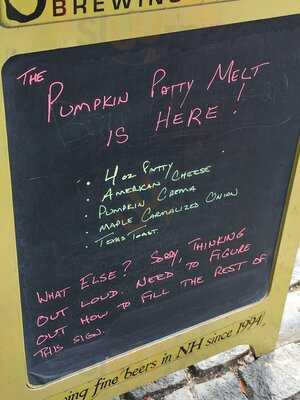 BREWING
THE
PUMPKIN PATTY MELT
IS HERE!
• 4 OZ PATTY
• AMERICAN CHEESE
• PUMPKIN CREMA
• MAPLE CARMALIZED ONION
• TEXAS TOAST
WHAT ELSE? SORRY, THINKING
OUT LOUD. NEED TO FIGURE
OUT HOW TO FILL THE REST OF
THIS SIGN.
ing fine beers in NH since 1994